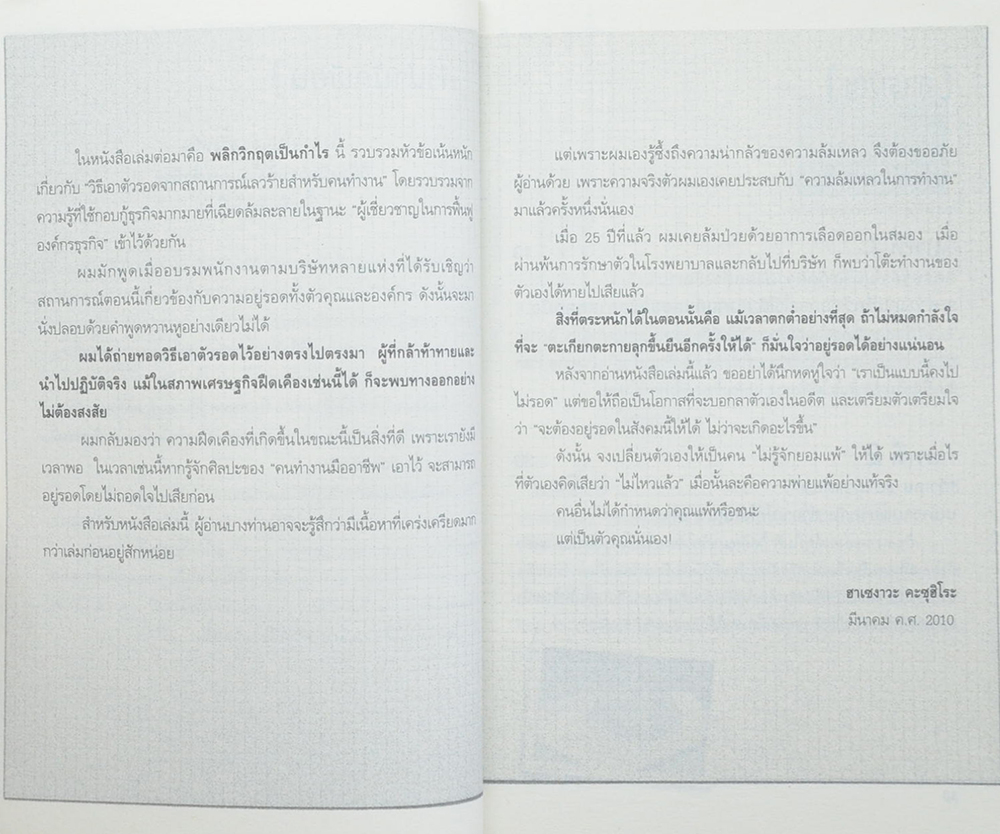 ในหนังสือเล่มต่อมาคือ พลิกวิกฤตเป็นกำไร นี้ รวบรวมหัวข้อเน้นหนัก
เกี่ยวกับ "วิธีเอาตัวรอดจากสถานการณ์เลวร้ายสำหรับคนทำงาน" โดยรวบรวมจาก
ความรู้ที่ใช้กอบกู้ธุรกิจมากมายที่เฉียดล้มละลายในฐานะ "ผู้เชี่ยวชาญในการฟื้นฟู
องค์กรธุรกิจ" เข้าไว้ด้วยกัน
ผมมักพูดเมื่ออบรมพนักงานตามบริษัทหลายแห่งที่ได้รับเชิญว่า
สถานการณ์ตอนนี้เกี่ยวข้องกับความอยู่รอดทั้งตัวคุณและองค์กร ดังนั้นจะมา
นั่งปลอบด้วยคำพูดหวานหูอย่างเดียวไม่ได้
ผมได้ถ่ายทอดวิธีเอาตัวรอดไว้อย่างตรงไปตรงมา ผู้ที่กล้าท้าทายและ
นำไปปฏิบัติจริง แม้ในสภาพเศรษฐกิจฝืดเคืองเช่นนี้ได้ ก็จะพบทางออกอย่าง
ไม่ต้องสงสัย
ผมกลับมองว่า ความฝืดเคืองที่เกิดขึ้นในขณะนี้เป็นสิ่งที่ดี เพราะเรายังมี
เวลาพอ ในเวลาเช่นนี้หากรู้จักศิลปะของ "คนทำงานมืออาชีพ" เอาไว้ จะสามารถ
อยู่รอดโดยไม่ถอดใจไปเสียก่อน
สำหรับหนังสือเล่มนี้ ผู้อ่านบางท่านอาจจะรู้สึกว่ามีเนื้อหาที่เคร่งเครียดมาก
กว่าเล่มก่อนอยู่สักหน่อย
แต่เพราะผมเองรู้ซึ้งถึงความน่ากลัวของความล้มเหลว จึงต้องขออภัย
ผู้อ่านด้วย เพราะความจริงตัวผมเองเคยประสบกับ "ความล้มเหลวในการทำงาน"
มาแล้วครั้งหนึ่งนั่นเอง
เมื่อ 25 ปีที่แล้ว ผมเคยล้มป่วยด้วยอาการเลือดออกในสมอง เมื่อ
ผ่านพ้นการรักษาตัวในโรงพยาบาลและกลับไปที่บริษัท ก็พบว่าโต๊ะทำงานของ
ตัวเองได้หายไปเสียแล้ว
สิ่งที่ตระหนักได้ในตอนนั้นคือ แม้เวลาตกต่ำอย่างที่สุด ถ้าไม่หมดกำลังใจ
ที่จะ "ตะเกียกตะกายลุกขึ้นยืนอีกครั้งให้ได้" ก็มั่นใจว่าอยู่รอดได้อย่างแน่นอน
หลังจากอ่านหนังสือเล่มนี้แล้ว ขออย่าได้นึกหดหู่ใจว่า "เราเป็นแบบนี้คงไป
ไม่รอด" แต่ขอให้ถือเป็นโอกาสที่จะบอกลาตัวเองในอดีต และเตรียมตัวเตรียมใจ
ว่า "จะต้องอยู่รอดในสังคมนี้ให้ได้ ไม่ว่าจะเกิดอะไรขึ้น"
ดังนั้น จงเปลี่ยนตัวเองให้เป็นคน "ไม่รู้จักยอมแพ้" ให้ได้ เพราะเมื่อไร
ที่ตัวเองคิดเสียว่า "ไม่ไหวแล้ว" เมื่อนั้นละคือความพ่ายแพ้อย่างแท้จริง
คนอื่นไม่ได้กำหนดว่าคุณแพ้หรือชนะ
แต่เป็นตัวคุณนั่นเอง!
ฮาเซงาวะ คะซุฮิโระ
มีนาคม ค.ศ. 2010